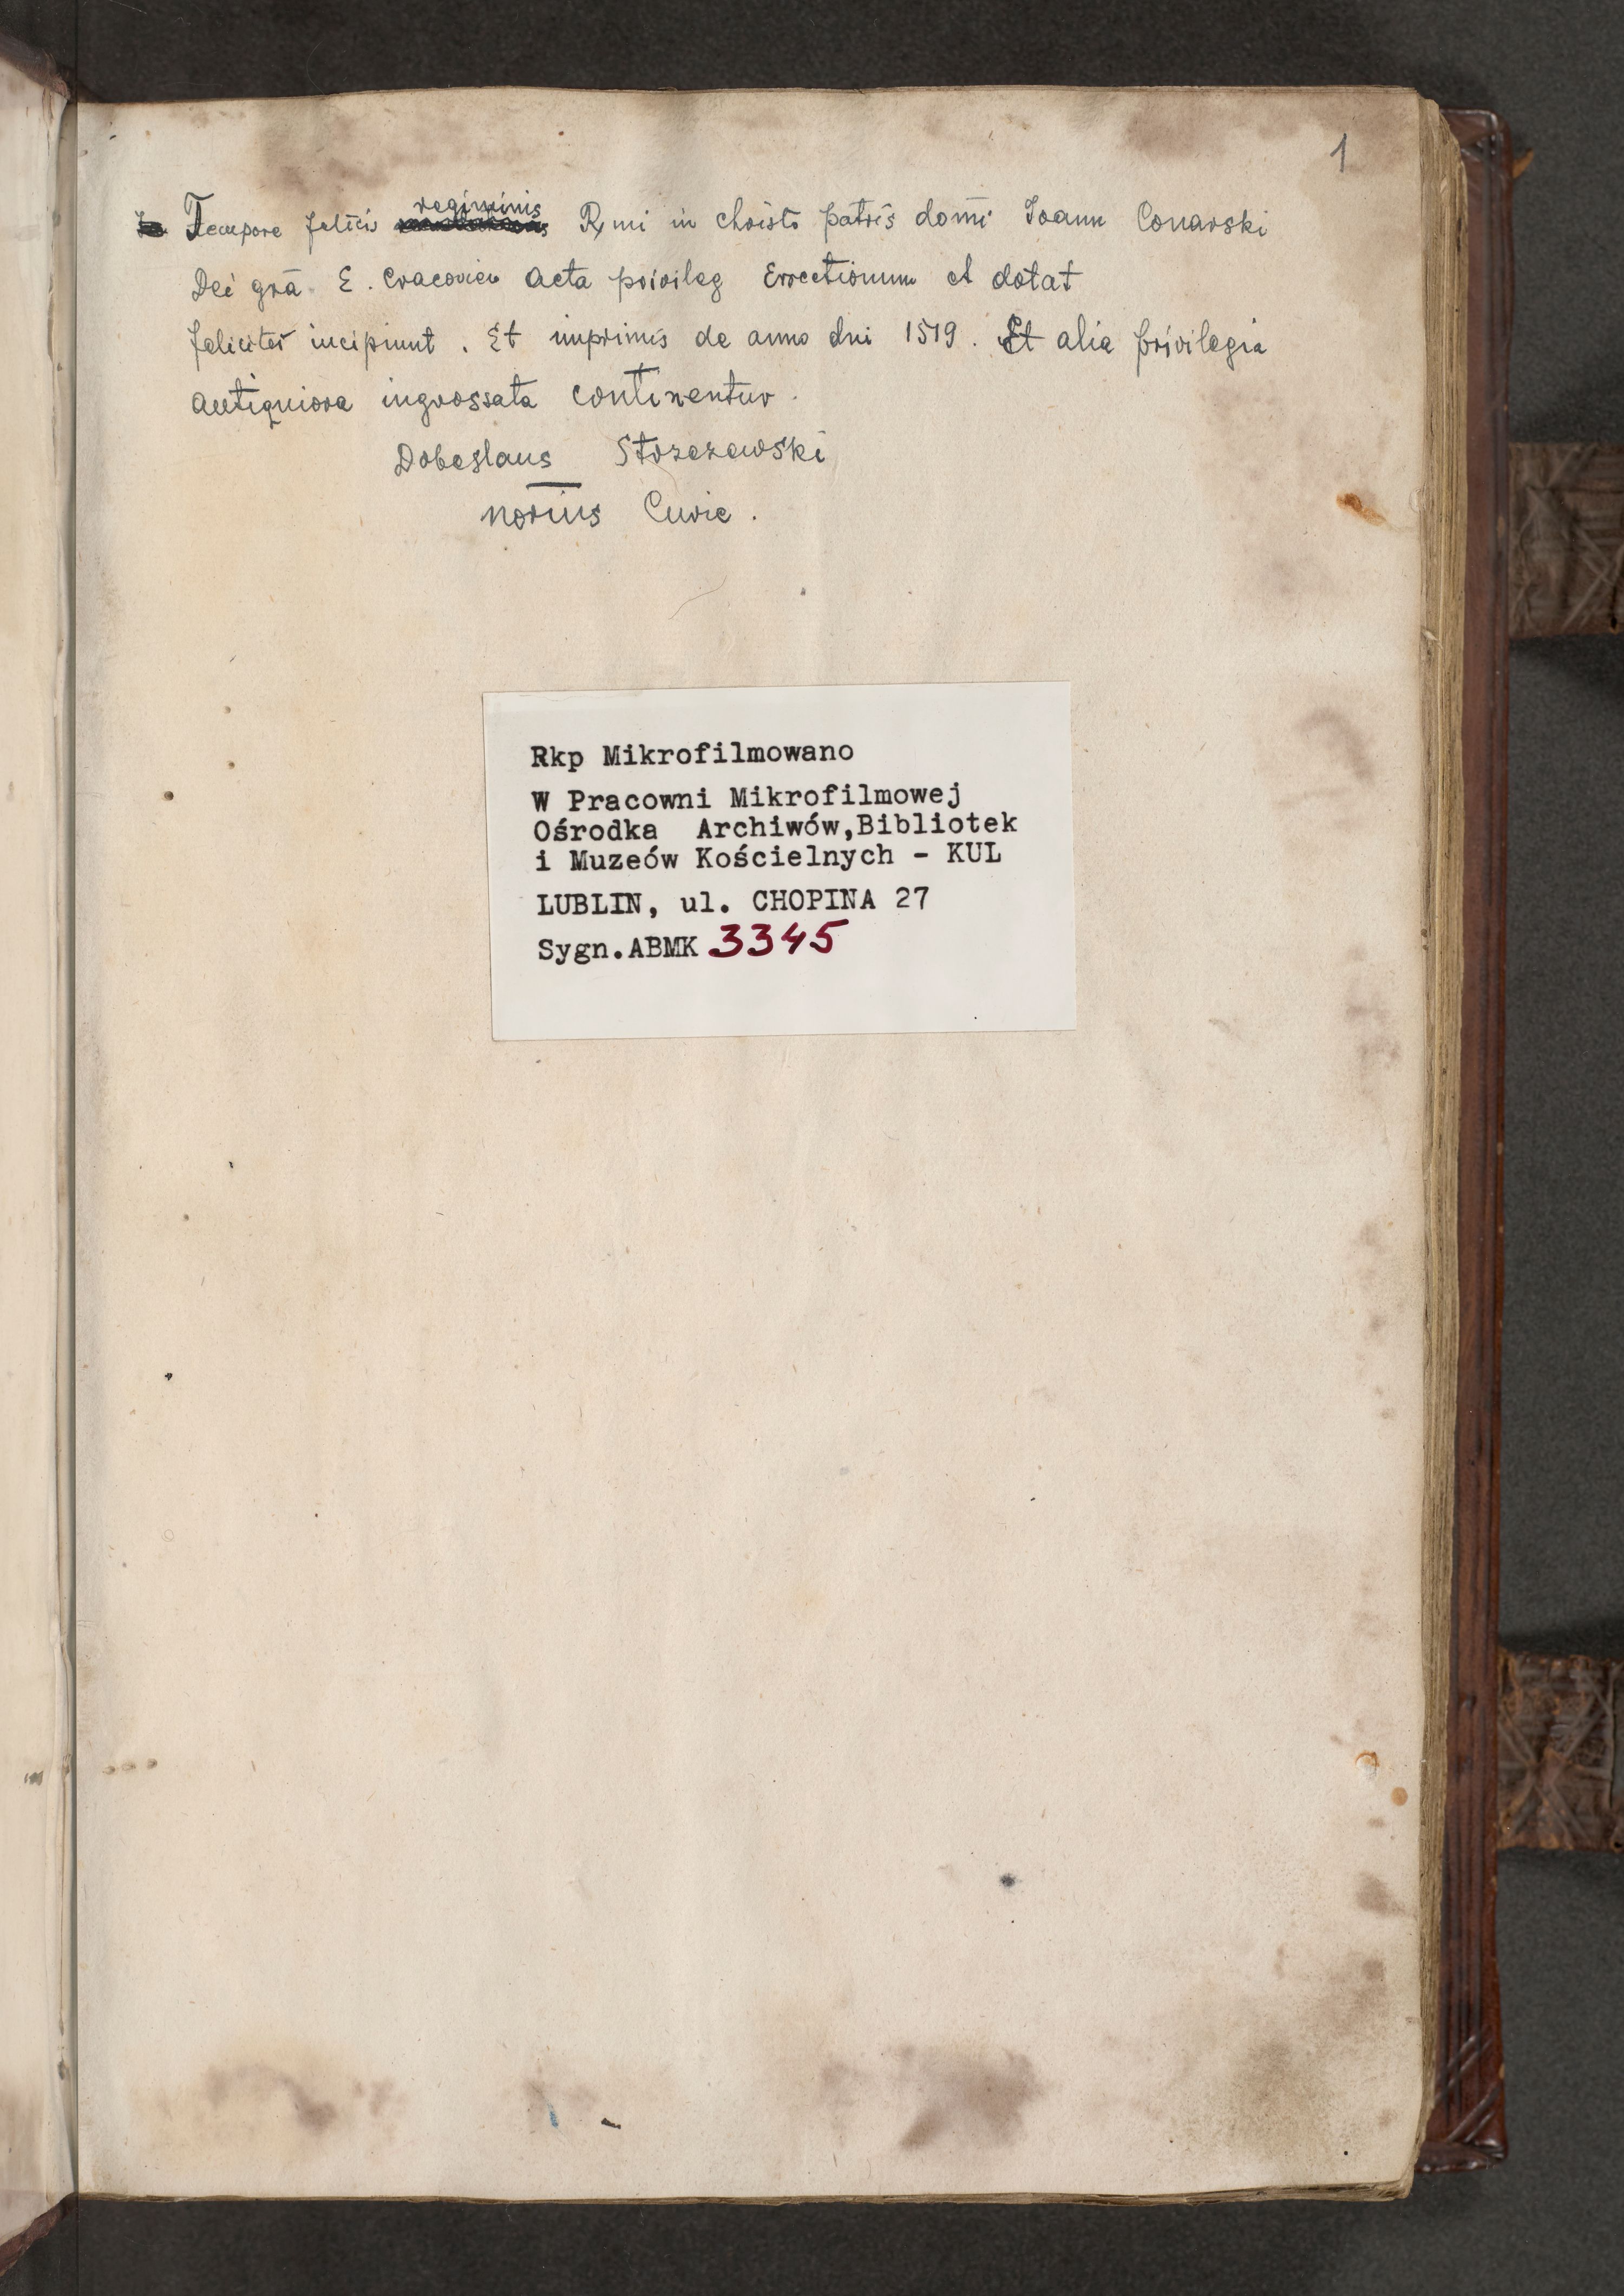 1
regiminis
Tempore felicis Rmi in christo patris domi Joann Conarski
Dei grā E. Cracovien Acta privileg Erectionum et dotat
feliciter incipiunt. Et imprimis de anno dni 1519. Et alia privilegia
antiquiora ingrossata continentur.
Dobeslaus Strzezewski
norius Curie.
Rkp Mikrofilmowano
W Pracowni Mikrofilmowej
Ośrodka Archiwów,Bibliotek
i Muzeów Kościelnych - KUL
LUBLIN, ul. CHOPINA 27
Sygn.ABMK 3345